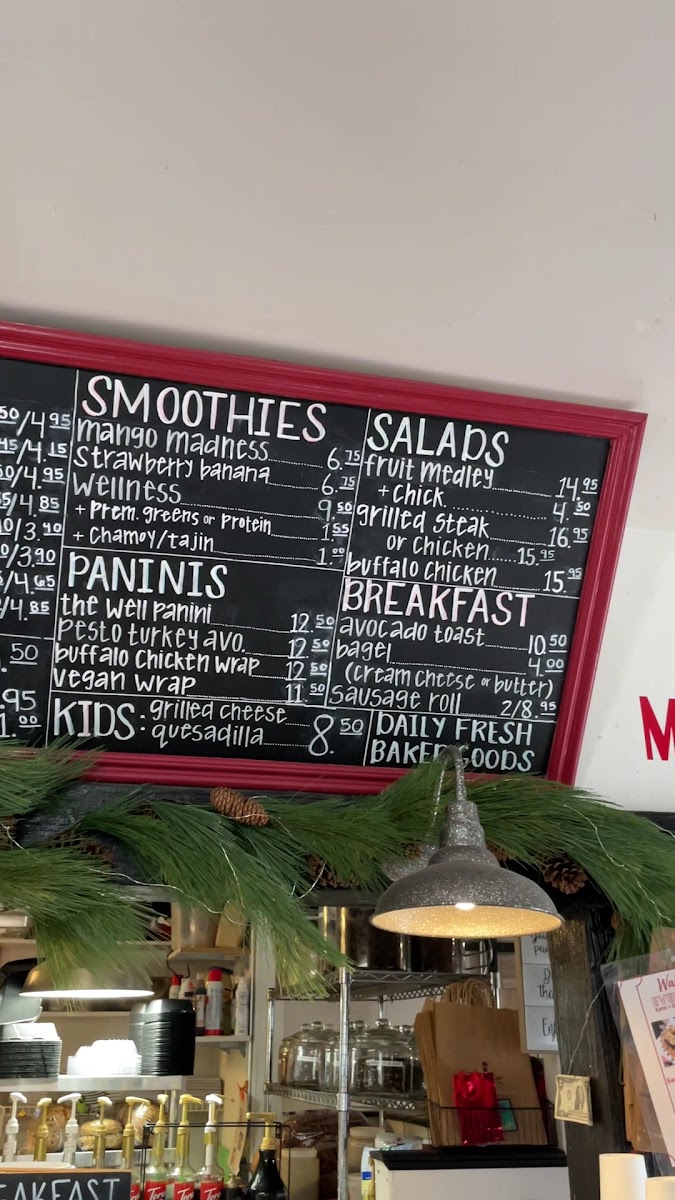 50/4.95
45/4.15
50/4.95
/4.85
0/3.40
0/3.90
/4.65
/4.85
.50
.95
1.00
SMOOTHIES
mango madness 6.75
strawberry banana 6.75
wellness 9.50
+ prem. greens or protein 1.55
+ chamoy/tajin 1.00
PANINIS
the well panini 12.50
pesto turkey avo. 12.50
buffalo chicken wrap 12.50
vegan wrap 11.50
KIDS: grilled cheese
quesadilla 8.50
SALADS
fruit medley 14.95
+ chick 4.50
grilled steak 16.95
or chicken 15.95
buffalo chicken 15.95
BREAKFAST
avocado toast 10.50
bagel 4.00
(cream cheese or butter)
sausage roll 2/8.95
DAILY FRESH
BAKED GOODS
M
EAKFAST